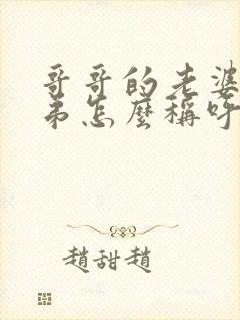 哥哥的老婆
弟怎麼稱呼
趙甜趙